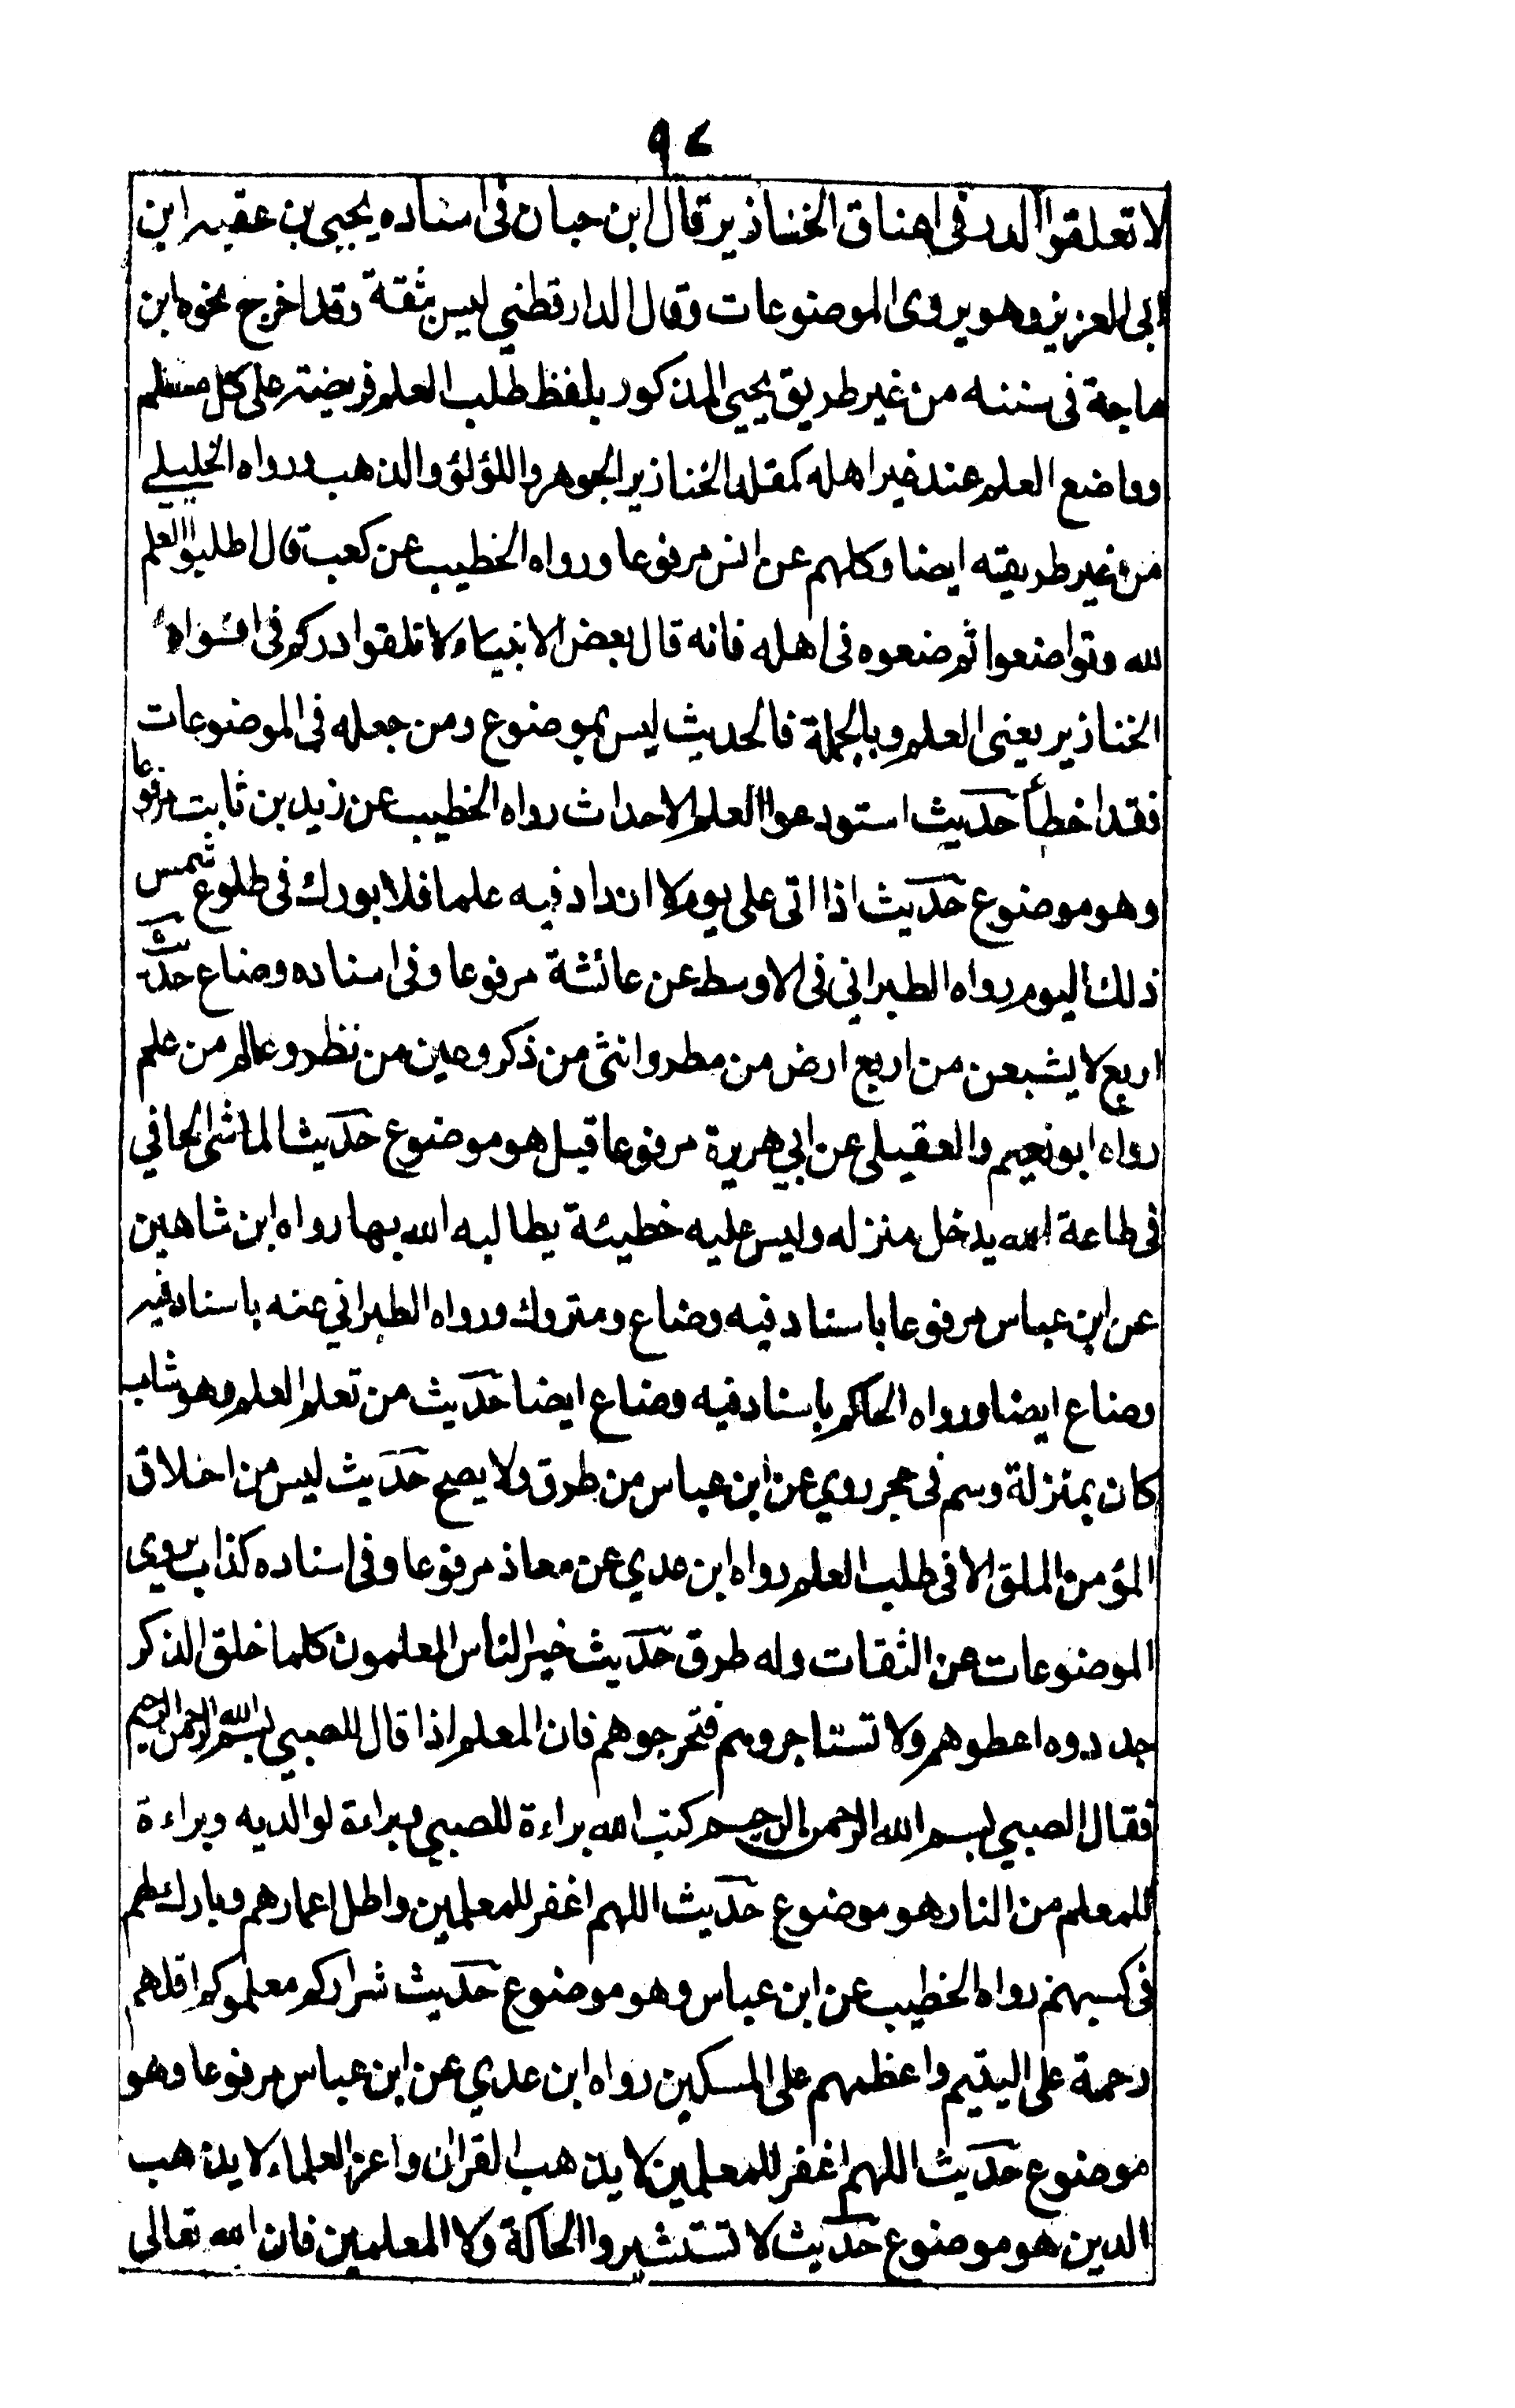 ٩٤
لا تعلقوا الدر فى اعناق الخنازير قال ابن حبان فى اسناده يحيى بن عقبه ابن
ابى العزيز وهو يروى الموضوعات وقال الدارقطني ليس بثقة وقد اخرج نحوه ابن
ماجة فى سننه من غير طريق يحيى المذكور بلفظ طلب العلم فريضة على كل مسلم
وواضع العلم عند غير اهله كمقلد الخنازير الجوهر واللؤلؤ والذهب ورواه الخليلي
من غير طريقه ايضا وكلهم عن انس مرفوعا ورواه الخطيب عن كعب قال اطلبوا العلم
لله وتواضعوا ثم ضعوه فى اهله فانه قال بعض الانبياء لا تلقوا دركم فى افواه
الخنازير يعنى العلم وبالجملة فالحديث ليس بموضوع ومن جعله فى الموضوعات
فقد اخطأ حديث استودعوا العلم الاحداث رواه الخطيب عن زيد بن ثابت مرفوعا
وهو موضوع حديث اذا اتى على يوم لا ازداد فيه علما فلا بورك فى طلوع شمس
ذلك اليوم رواه الطبرانى فى الاوسط عن عائشة مرفوعا وفى اسناده وضاع حديث
اربع لا يشبعن من اربع ارض من مطر وانثى من ذكر وعين من نظر وعالم من علم
رواه ابو نعيم والعقيلى عن ابي هريرة مرفوعا قيل هو موضوع حديث الماشى الحافي
فى طاعة الله يدخل منزله وليس عليه خطيئة يطالبه الله بها رواه ابن شاهين
عن ابن عباس مرفوعا باسناد فيه وضاع ومتروك ورواه الطبرانى عنه باسناد فيه
وضاع ايضا ورواه الحاكم باسناد فيه وضاع ايضا حديث من تعلم العلم وهو شاب
كان بمنزلة وسم فى حجر روي عن ابن عباس من طرق ولا يصح حديث ليس من اخلاق
المؤمن الملق الا فى طلب العلم رواه ابن عدي عن معاذ مرفوعا وفى اسناده كذاب يروي
الموضوعات عن الثقات وله طرق حديث خير الناس المعلمون كلما خلق الذكر
جددوه اعطوهم ولا تستاجروهم فتحرجوهم فان المعلم اذا قال للصبي بسم الله الرحمن الرحيم
فقال الصبي بسم الله الرحمن الرحيم كتب الله براءة للصبي وبراءة لوالديه وبراءة
للمعلم من النار هو موضوع حديث اللهم اغفر للمعلمين واطل اعمارهم وبارك لهم
فى كسبهم رواه الخطيب عن ابن عباس وهو موضوع حديث شراركم معلموكم اقلهم
رحمة على اليتيم واغظهم على المسكين رواه ابن عدي عن ابن عباس مرفوعا وهو
موضوع حديث اللهم اغفر للمعلمين لا يذهب القران واعز العلماء لا يذهب
الدين هو موضوع حديث لا تستشيروا الحاكة ولا المعلمين فان الله تعالى